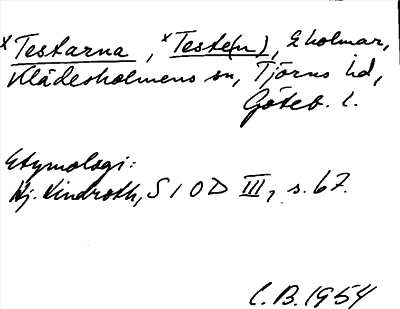 x Testarna, x Teste(n), 2 holmar,
Klädesholmens sn, Tjörns hd,
Göteb. l.
Etymologi:
Hj. Lindroth, S I O D III, s. 67.
C.B. 1954